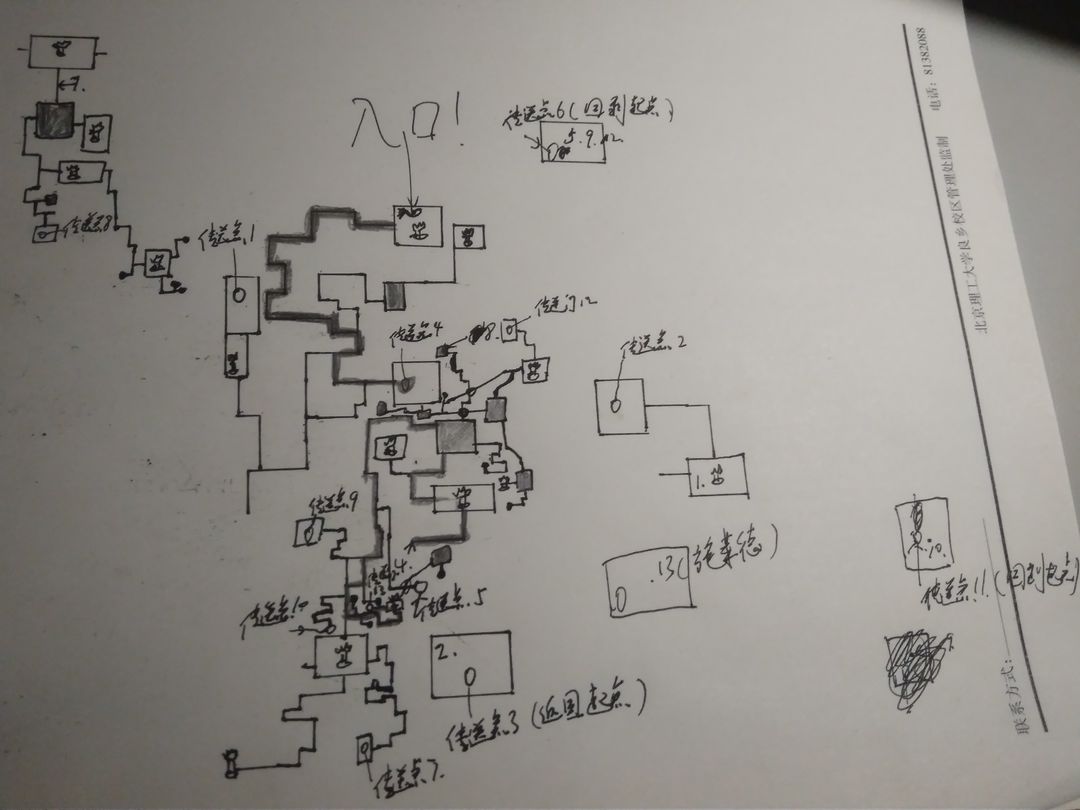 7.
入口!
传送点6(回到起点)
5.9.12.
传送点8
传送点1
传送门12
传送点4
8.
传送点2
1.
传送点9
4.
.13(
传送点11(回到起点)
传送点5
传送点10
2.
传送点3(返回起点)
传送点7.
北京理工大学良乡校区管理处监制
电话：81382088
联系方式：